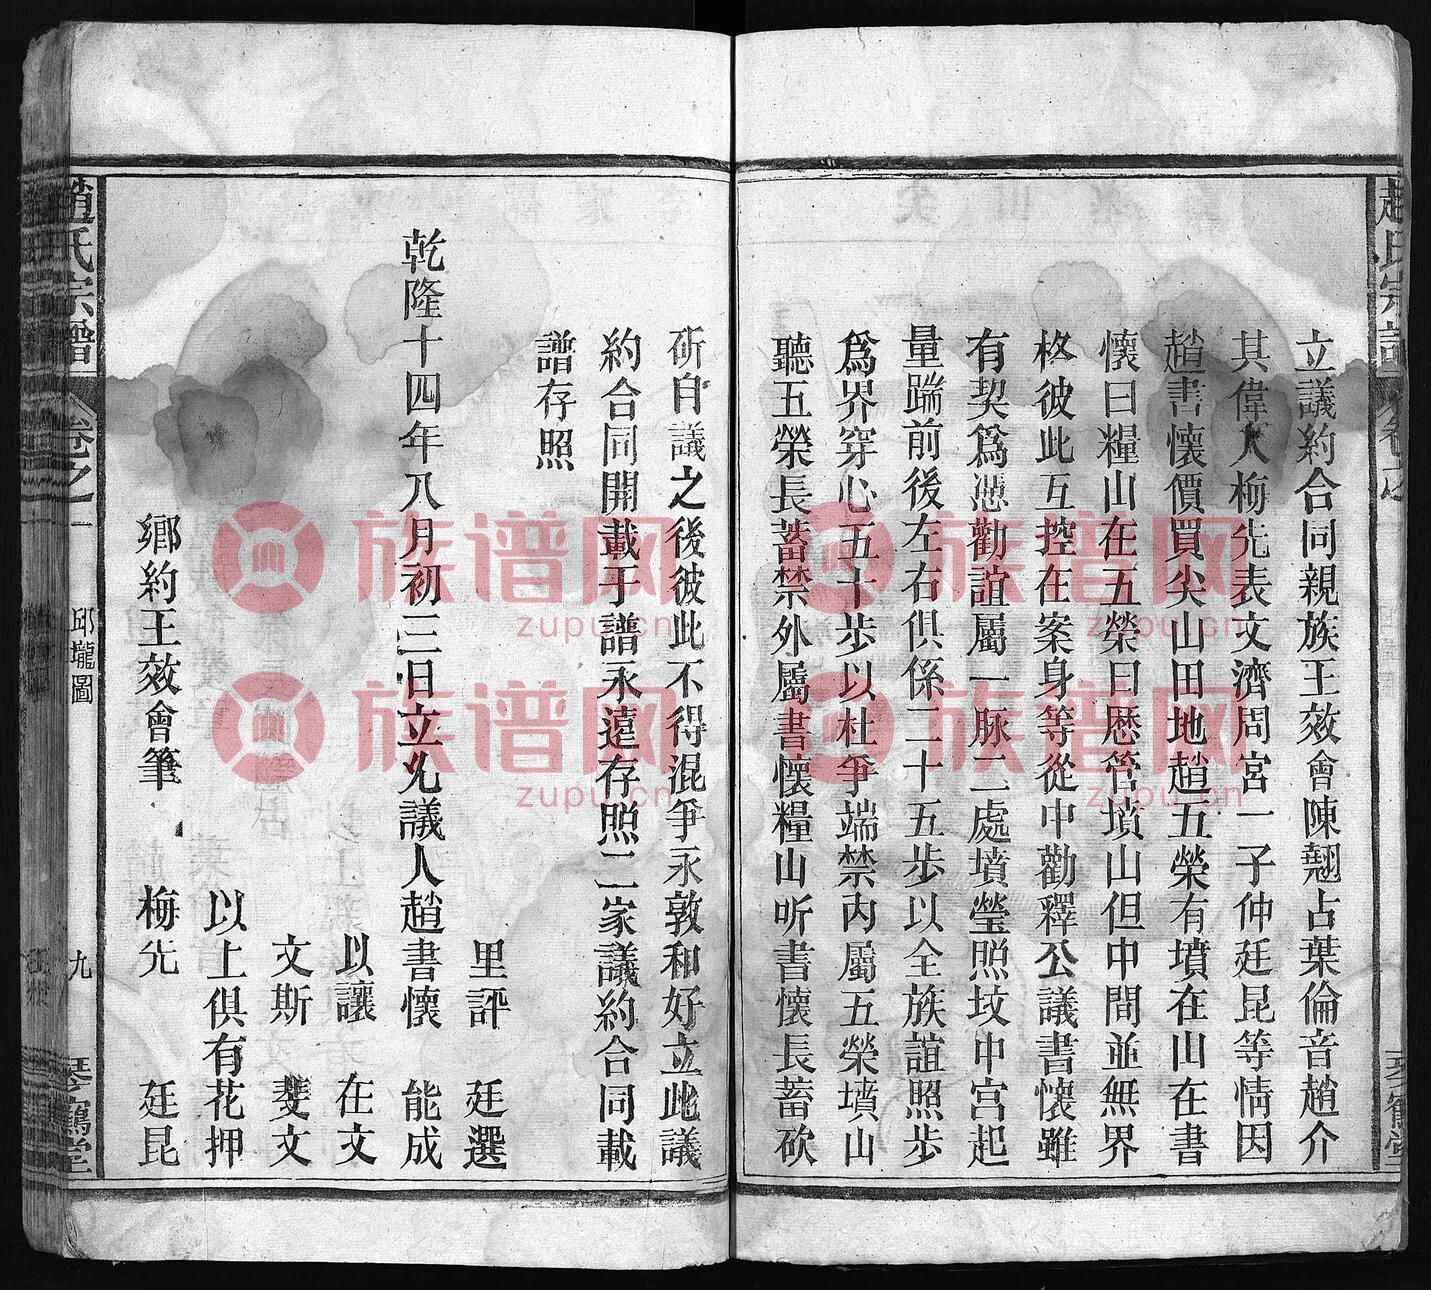 趙氏宗譜 卷之一 琴鶴堂
立議約合同親族王效會陳翹占葉倫音趙介
其偉人梅先表文濟周宮一子仲廷昆等情因
趙書懷價買尖山田地趙五榮有墳在山在書
懷曰糧山在五榮曰歷管墳山但中間並無界
格彼此互控在案身等從中勸釋公議書懷雖
有契爲憑勸誼屬一脉二處墳瑩照坟中宮起
量踹前後左右俱係二十五步以全族誼照步
爲界穿心五十步以杜爭端禁內屬五榮墳山
聽五榮長蓄禁外屬書懷糧山听書懷長蓄砍
斫自議之後彼此不得混爭永敦和好立此議
約合同開載于譜永遠存照二家議約合同載
譜存照
里評 廷選
乾隆十四年八月初三日立允議人趙書懷 能成
以讓 在文
文斯 斐文
以上俱有花押
鄉約王效會筆 梅先 廷昆
趙氏宗譜 卷之一 邱壠圖 九 琴鶴堂
族谱网
zupu.cn
族谱网
zupu.cn
族谱网
zupu.cn
族谱网
zupu.cn